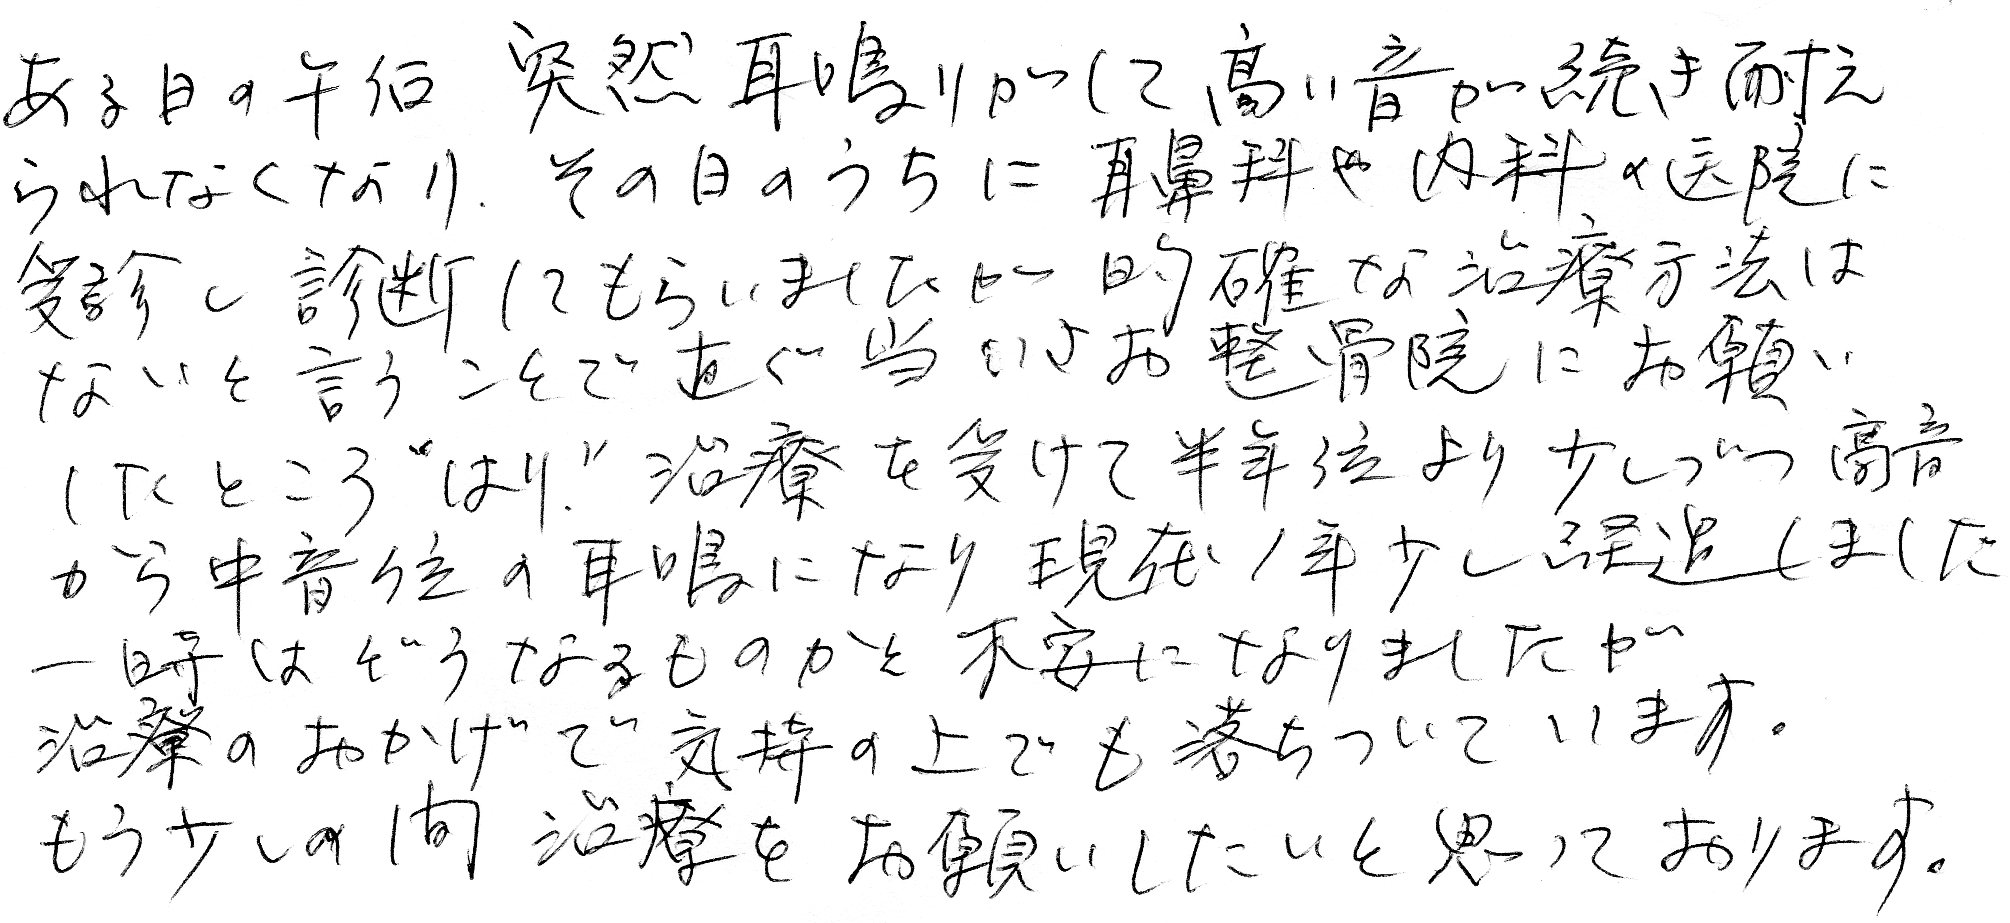 ある日の午后 突然 耳鳴りがして高い音が続き耐え
られなくなり、その日のうちに耳鼻科や内科の医院に
受診し診断してもらいましたが的確な治療方法は
ないと言うことで直ぐ当 お整骨院にお願い
したところ“はり”治療を受けて半年位より少しづつ高音
から中音位の耳鳴になり現在1年少し経過しました
一時はどうなるものかと不安になりましたが
治療のおかげで気持の上でも落ちついています。
もう少しの間 治療をお願いしたいと思っております。